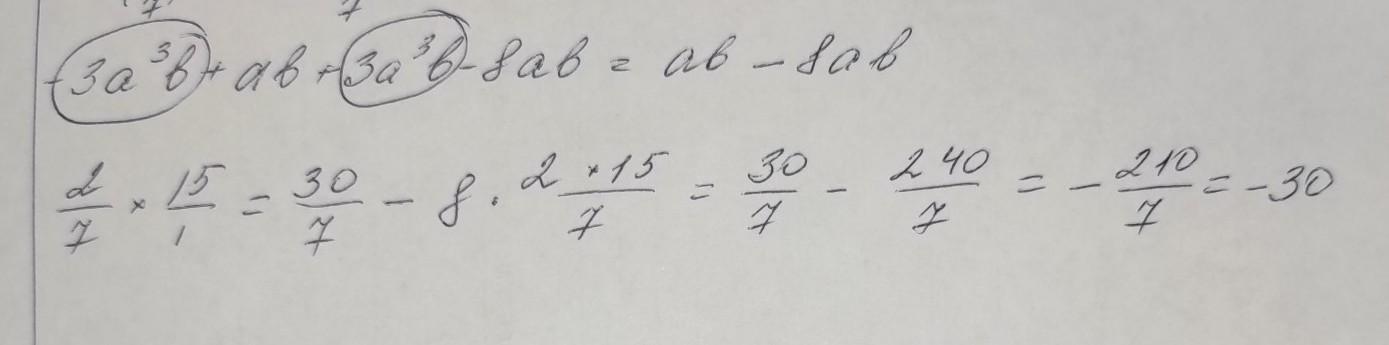 7 7
-3a³b + ab + 3a³b - 8ab = ab - 8ab
2/7 × 15/1 = 30/7 - 8 · 2×15/7 = 30/7 - 240/7 = -210/7 = -30